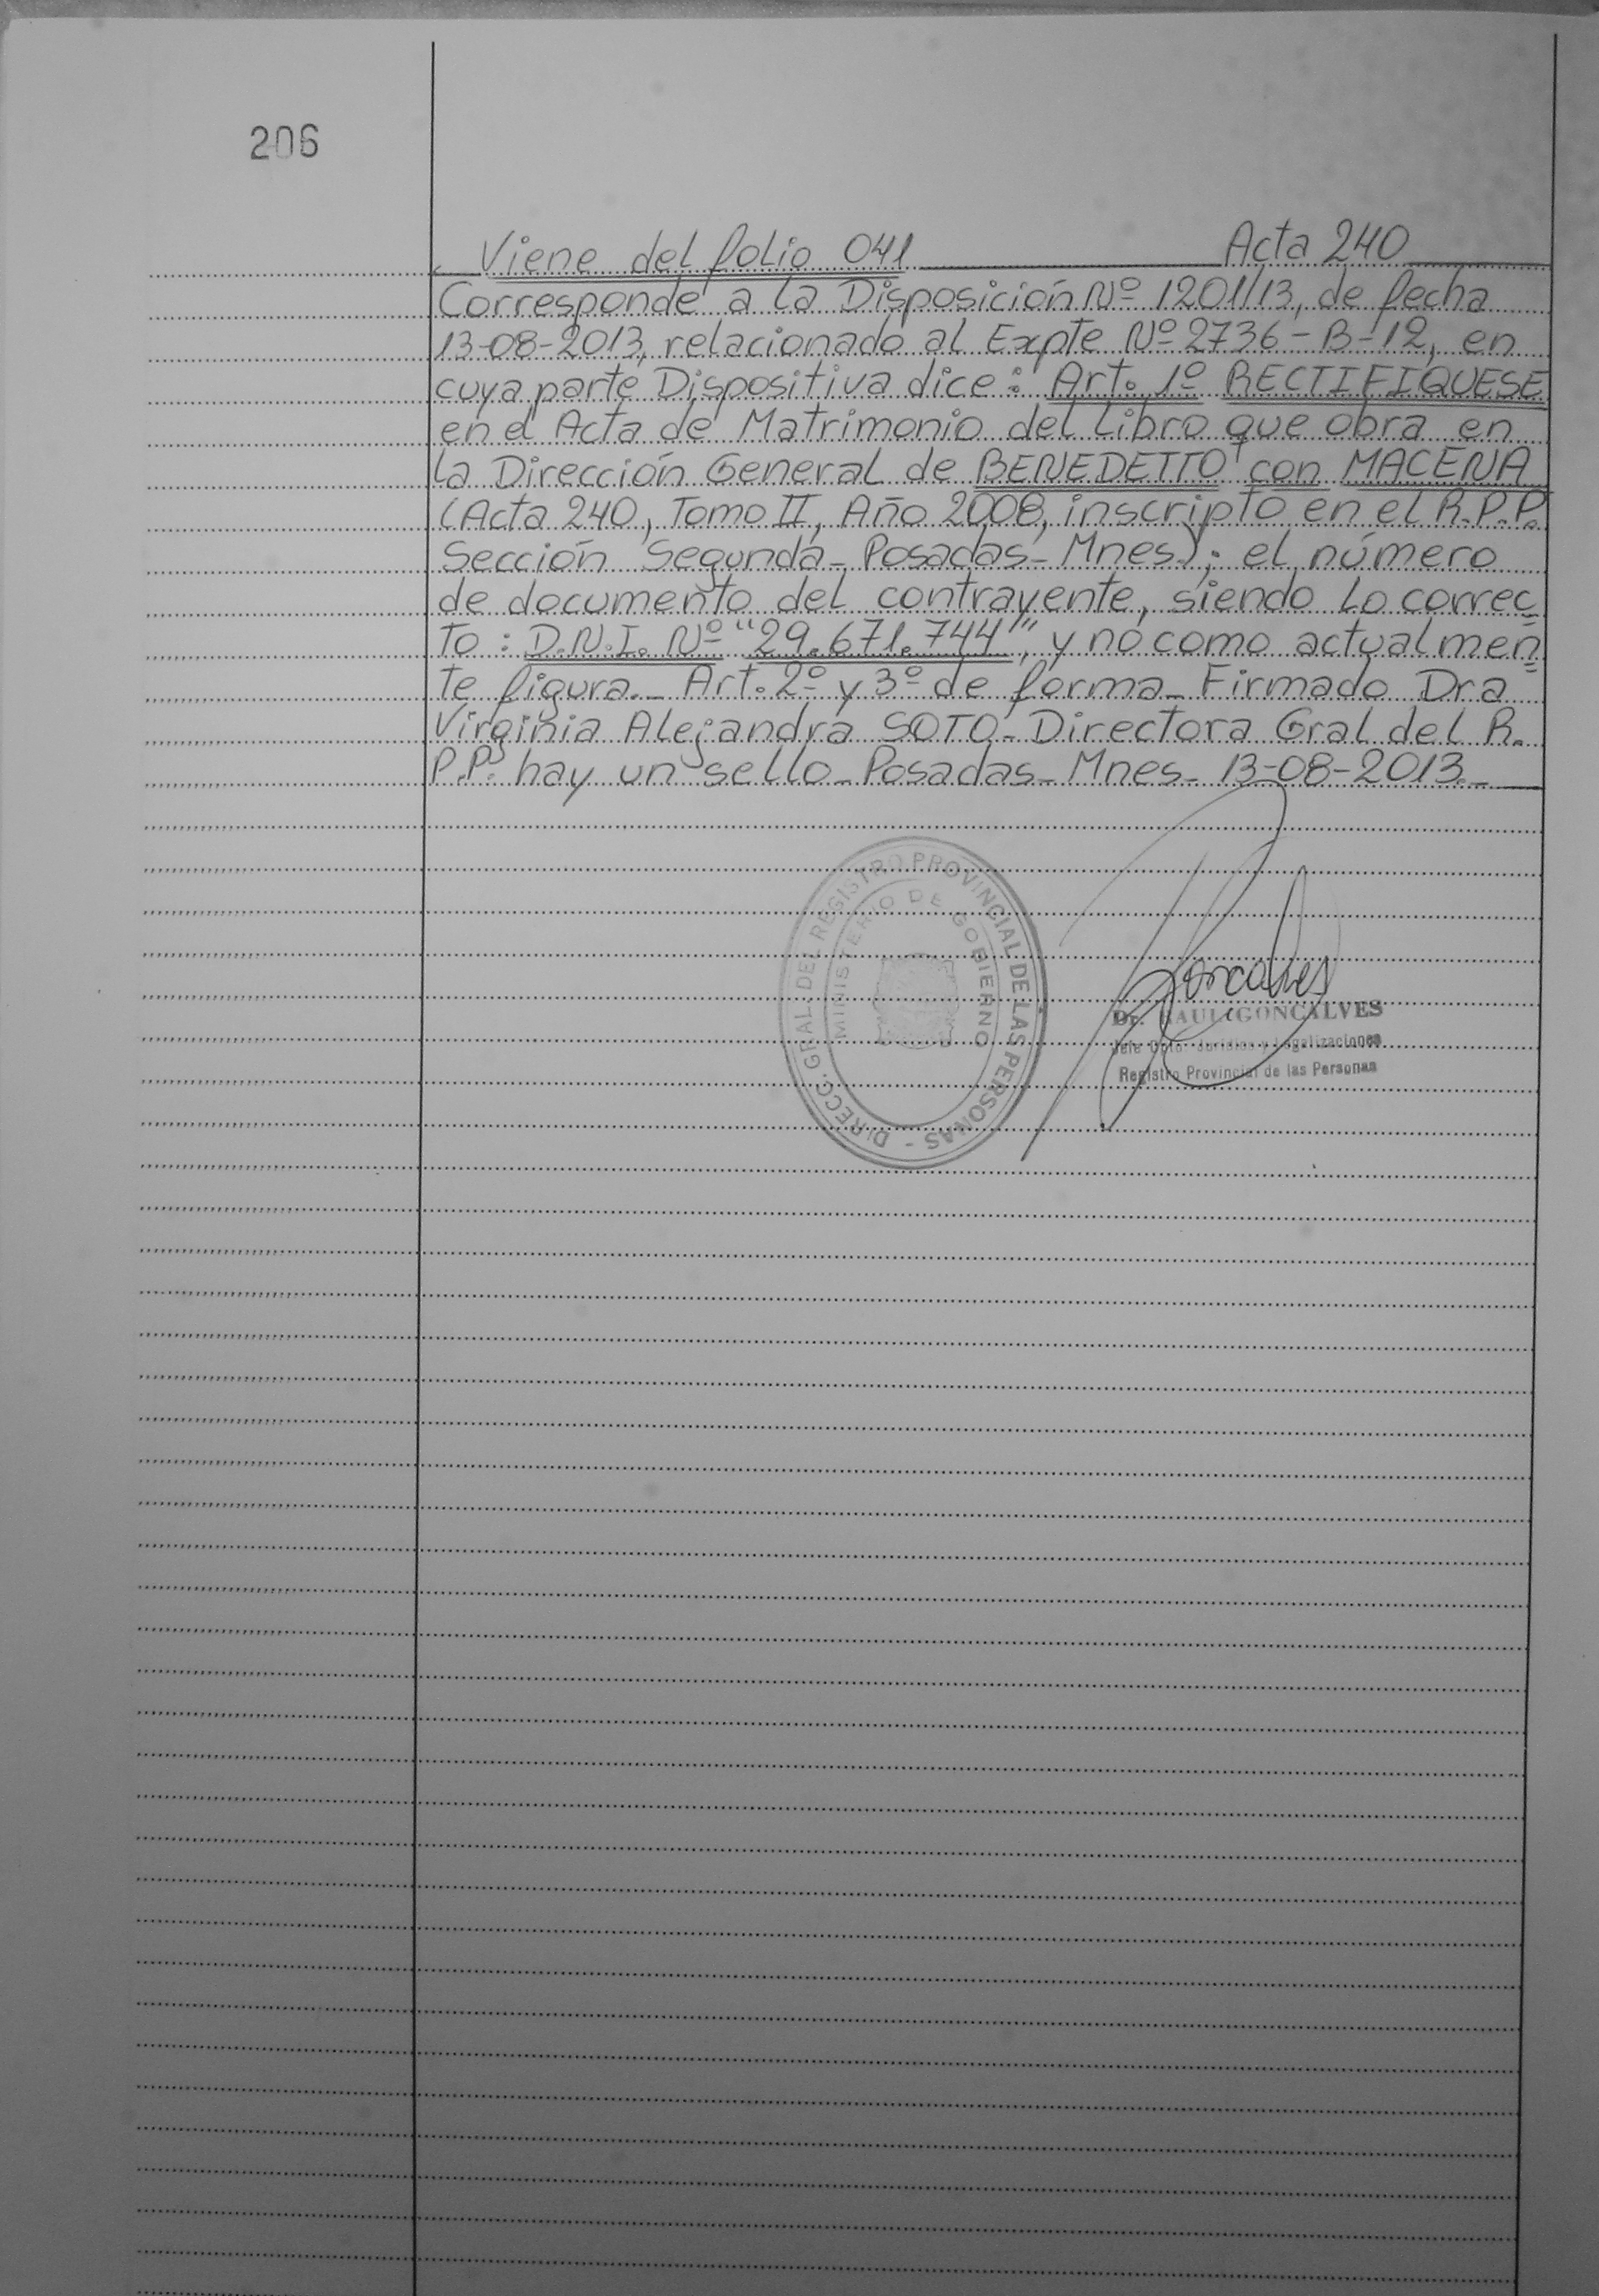 206
Viene del folio 041 Acta 240
Corresponde a la Disposición Nº 1201/13, de fecha
13-08-2013, relacionado al Expte Nº 2736-B-12, en
cuya parte Dispositiva dice: Art. 1º RECTIFIQUESE
en el Acta de Matrimonio del Libro que obra en
la Dirección General de BENEDETTO con MACENA
(Acta 240, Tomo II, Año 2008, inscripto en el R.P.P.
Sección Segunda - Posadas - Mnes); el número
de documento del contrayente, siendo lo correc=
to: D.N.I. Nº "29.671.744", y no como actualmen=
te figura._ Art. 2º y 3º de forma_ Firmado Dra
Virginia Alejandra SOTO_ Directora Gral del R.
P.P. hay un sello_ Posadas_ Mnes_ 13-08-2013._
DIRECC. GRAL. DEL REGISTRO PROVINCIAL DE LAS PERSONAS -
MINISTERIO DE GOBIERNO
Goncalves
Dr. RAUL GONCALVES
Jefe Dpto. Jurídico y Legalizaciones
Registro Provincial de las Personas